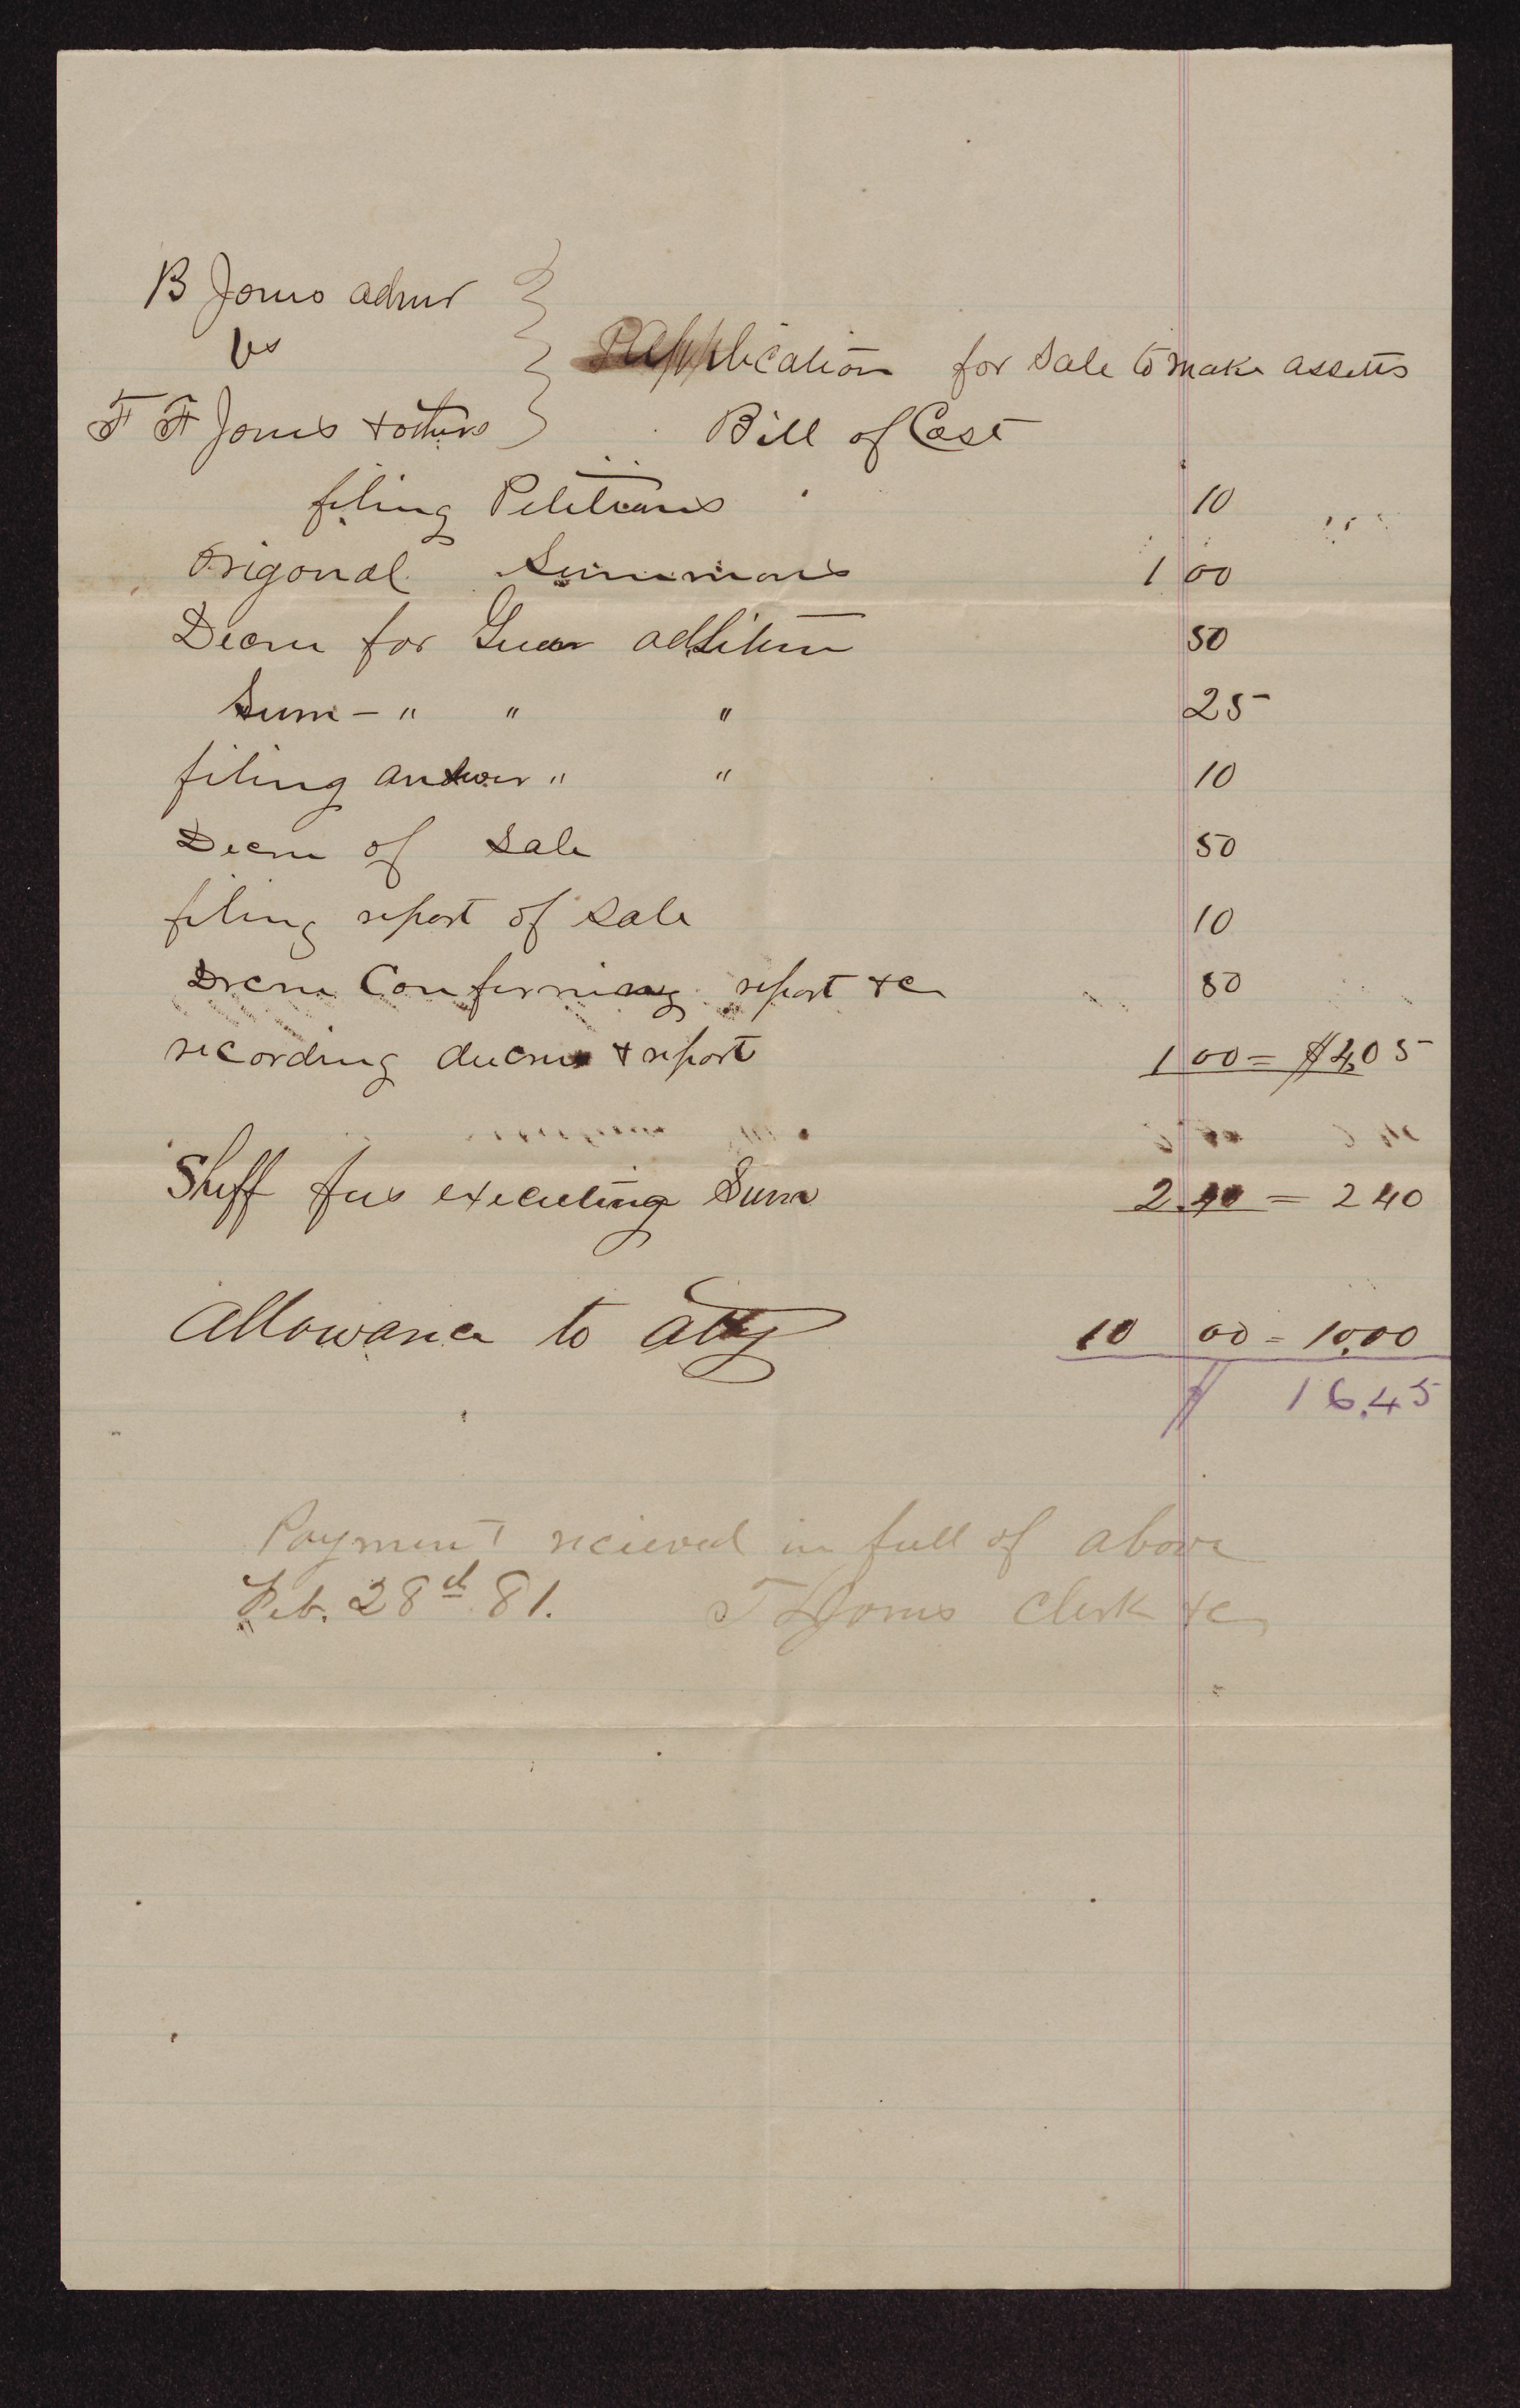 B Jones admr
vs
Application for Sale to make assetts
F F Jones + others
Bill of Cost
filing Petitions 10
Origonal Summons 1 00
Decree for Guar ad Litem 50
Sum - " " " 25
filing answer " " 10
Decree of Sale 50
filing report of Sale 10
Decree Confirming report &c 50
recording decree + report 1 00 = $4,05
Shff fees executing Sum 2.40 = 2 40
Allowance to atty 10 00 = 10.00
$ 16.45
Payment recieved in full of above
Feb. 28th 81. Jones Clerk &c